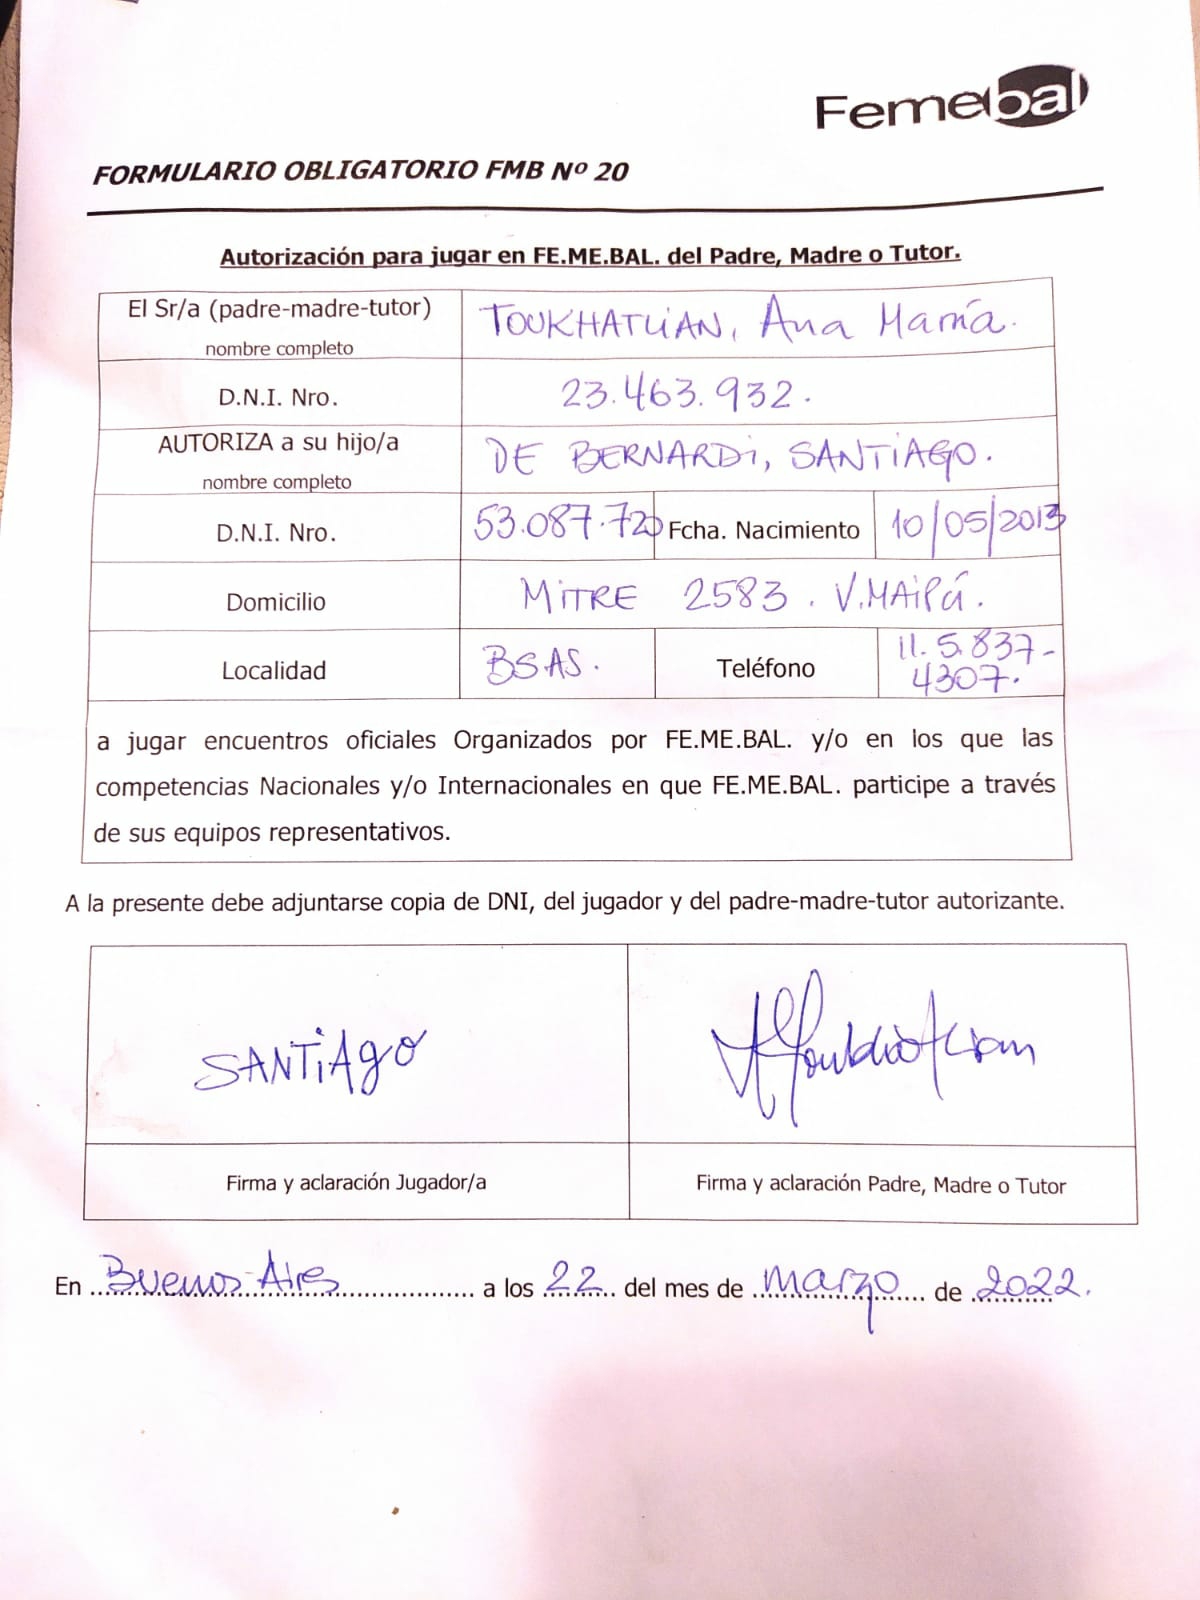 Femebal
FORMULARIO OBLIGATORIO FMB Nº 20
Autorización para jugar en FE.ME.BAL. del Padre, Madre o Tutor.
El Sr/a (padre-madre-tutor) TOUKHATLiAN, Ana María.
nombre completo
D.N.I. Nro. 23.463.932.
AUTORIZA a su hijo/a DE BERNARDi, SANTiAGO.
nombre completo
D.N.I. Nro. 53.087.720 Fcha. Nacimiento 10/05/2013
Domicilio MiTRE 2583. V.MAiPú.
Localidad BSAS. Teléfono 11.5.837-
4307.
a jugar encuentros oficiales Organizados por FE.ME.BAL. y/o en los que las
competencias Nacionales y/o Internacionales en que FE.ME.BAL. participe a través
de sus equipos representativos.
A la presente debe adjuntarse copia de DNI, del jugador y del padre-madre-tutor autorizante.
SANTiAgO
Firma y aclaración Jugador/a Firma y aclaración Padre, Madre o Tutor
En Buenos Aires a los 22 del mes de marzo de 2022.